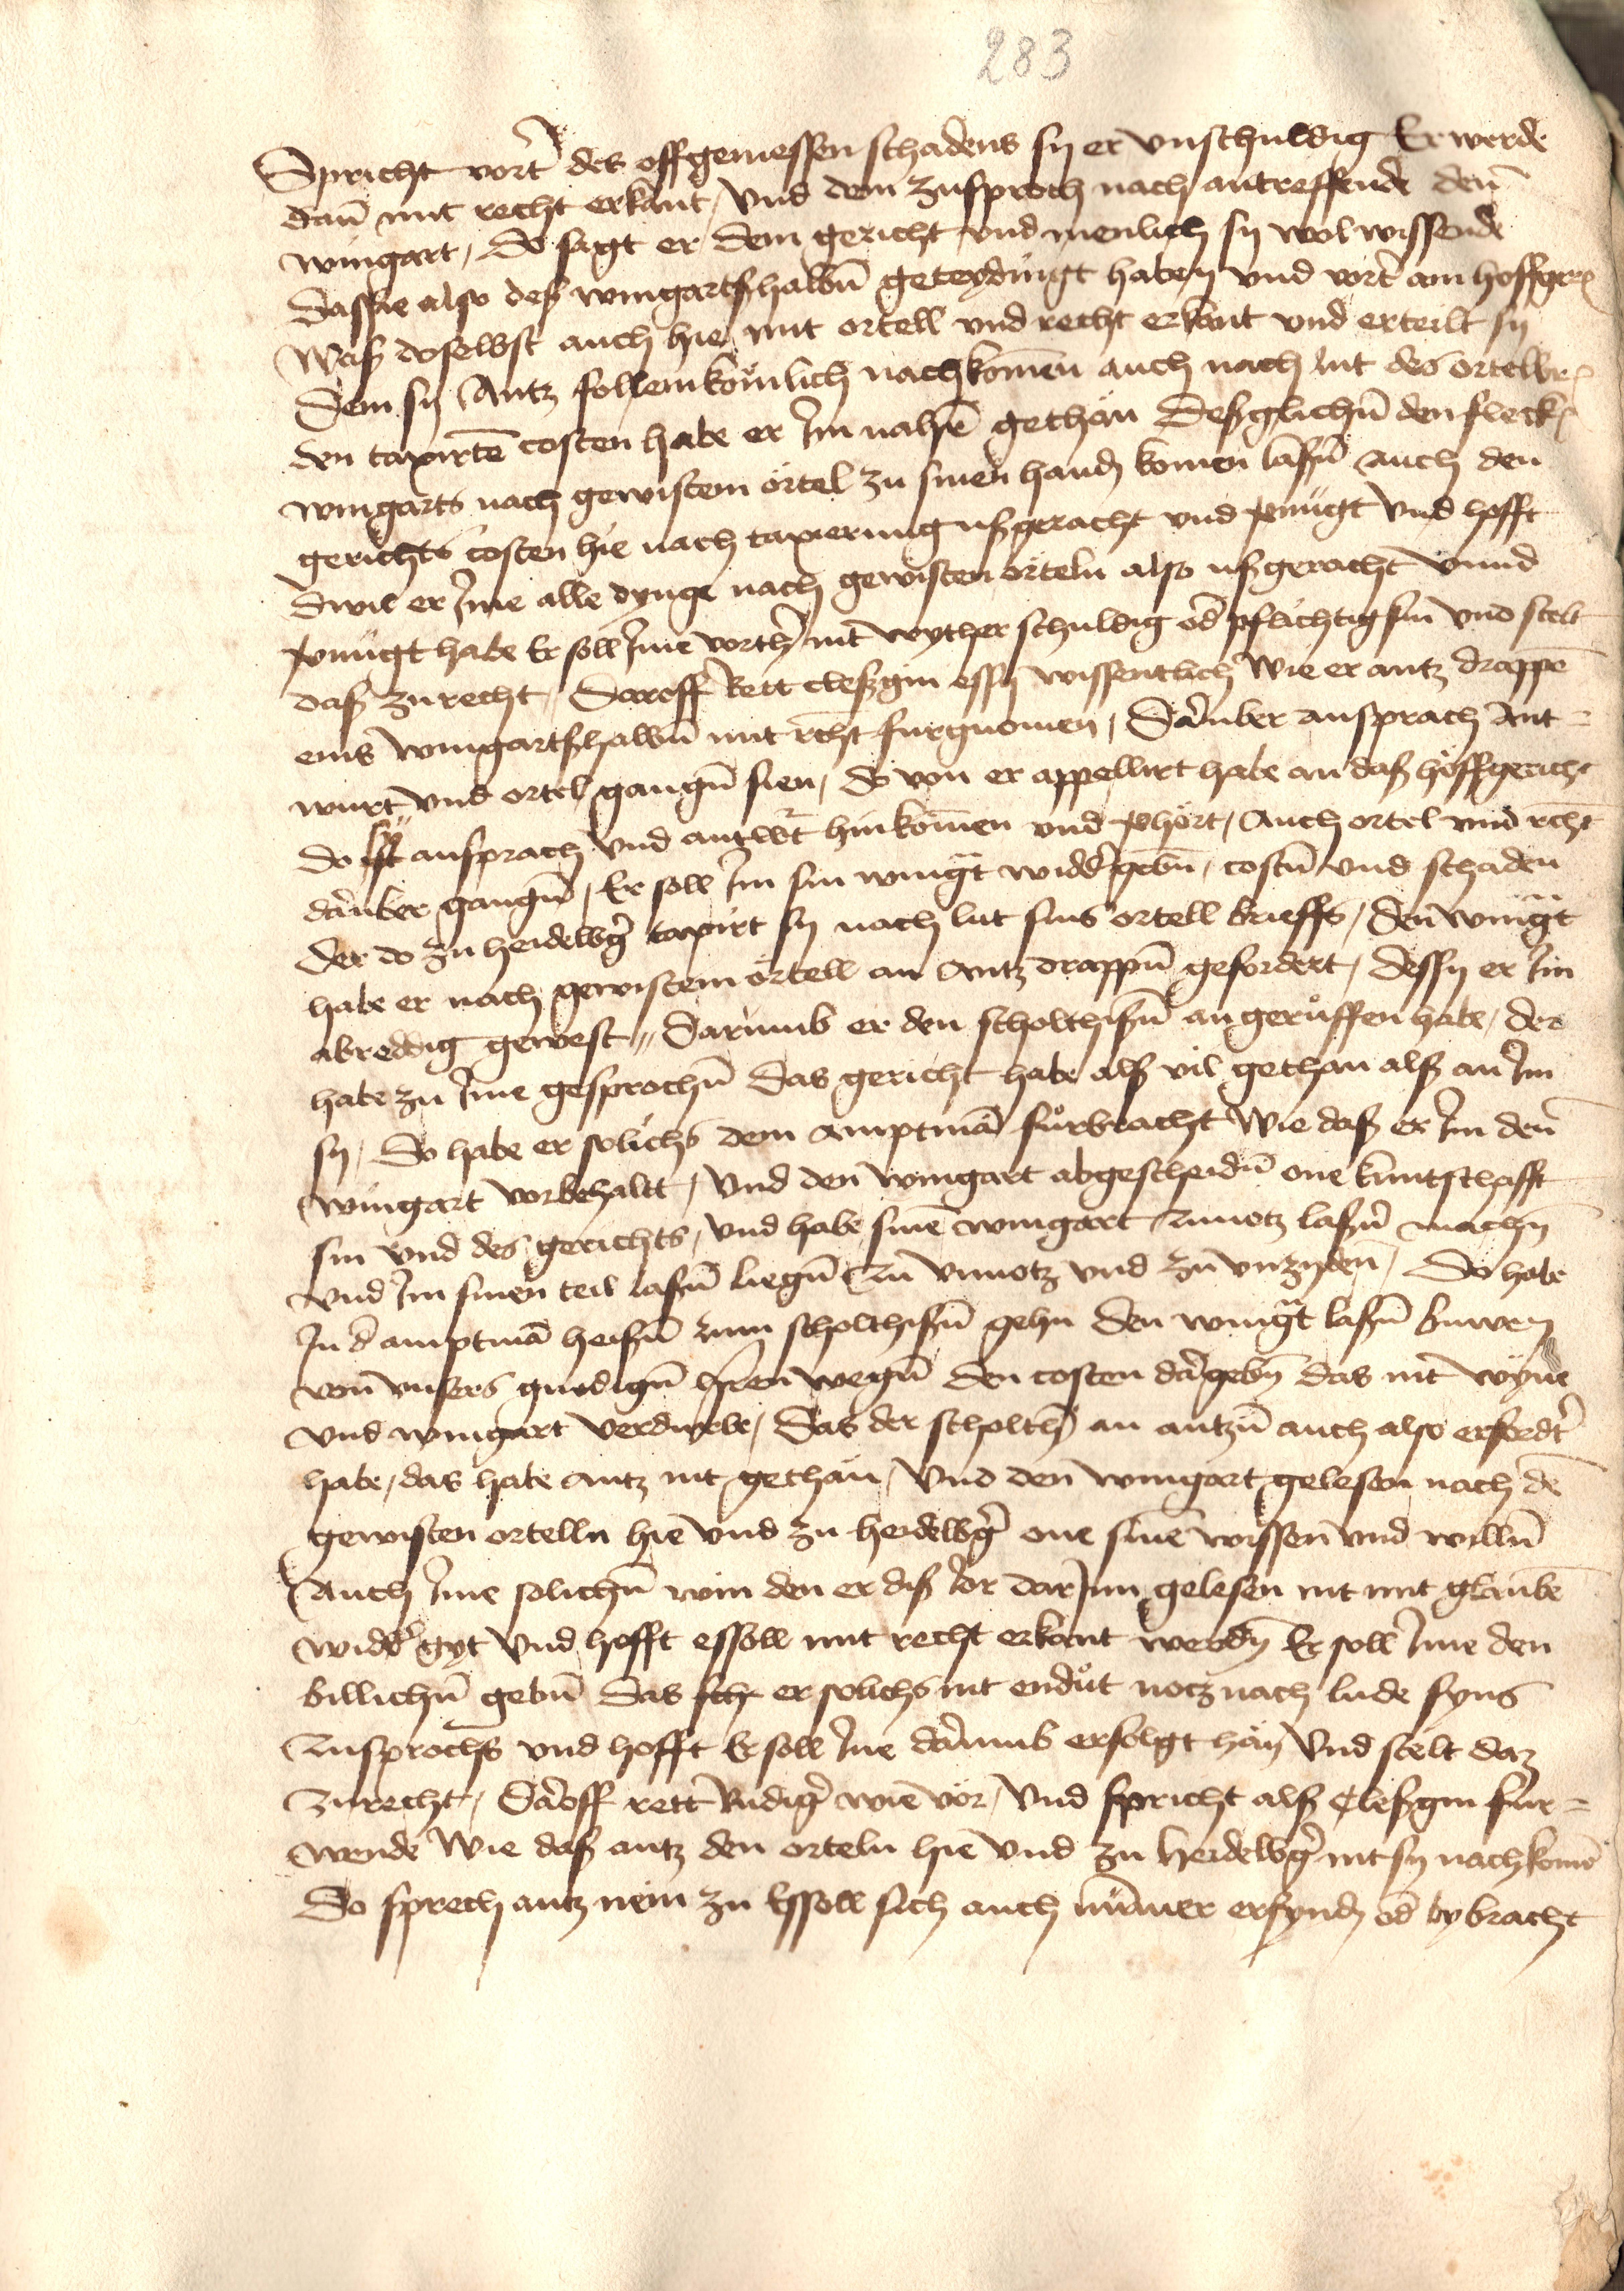 283
Spricht vort des offgemessen schadens sy er vnschuldig Er werde
dan̄ mit recht erkant, vnd dem zusproch nach antreffende den
wingart, So sagt er dem gericht vnd menlich sy wol wissende
das sie also deß wingartßhalbn̄ geteydingt haben vnd vort am hoffger
Waß doselbst auch hie mit ortell vnd recht erkant vnd erteilt sy
Dem sy Antz follenkōmlich nachkomen̄ auch nach lut des ortelbr
den taxirtē costen habe er Im nahē gethan Deßglichn̄ den fleck
wingarts nach gewistem ortel zu sinen handen komen laßn̄ auch den
gerichts costen hie nach taxierung ußgeracht vnd vernugt Vnd hofft
Dwil er Ime alle dynge nach gewisten orteln also ußgeracht vnnd
vernugt habe Er soll Ime vorth nit wyther schuldig od pflichtig sin vnd stelt
daß zu recht, Daroff Rett cleßgin essy wissentlich Wie er antz drappē
eins wingartßhalbn̄ mit recht furgnomen, Daruber ansprach Ant=
wurt vnd ortel gangn̄ sien, do von er appellirt habe an daß hoffgericht
Do sy ansprach vnd antwt hinkomen vnd verhort, Auch ortel vnd recht
daruber gangn̄, Er soll Im sin wingt widd gebn̄, costn̄ vnd schaden
der do zu heidelbg taxirt sy nach lut sins ortell brieffs, den wingt
habe er nach gewistem ortell an Antz drappn̄ gefordert, dessy er Im
abreddig gewest, Darumb er den scholthißn̄ angeruffen habe, der
habe zu Ime gesprochn̄ Das gericht habe alß vil gethan alß an Im
sy, So habe er solichs dem amptmā furbracht Wie daß er Im den
wingart vorbehaltt, Vnd den wingart abgescheidn̄ one kuntschafft
sin vnd des gerichts, vnd habe sinē wingart zunotz laßn̄ machen
vnd Im sinen teil laßn̄ liegn̄ zu vnnotz vnd zu vnzyden, So habe
In d amptmā heißn̄ zum scholthißn̄ gehn den wingt laßn̄ buwen
von vnsers gnedign̄ hren wegn̄ den costen dar gebn̄ das nit wyne
vnd wingart verdurbe, Das der scholth an antzn̄ auch also erfordt
habe, das habe antz nit gethan, Vnd den wingart gelesen nach de
gewisten ortelln hie vnd zu heidelbg one sinē wissen vnd willn̄
Auch Ime solichn̄ win den er diß Jor dar Inn gelesen nit mit glaubē
widd gyt Vnd hofft essoll mit recht erkant werden Er soll Ime den
billichn̄ gebn̄ Das sch er solichs nit endut noch nach lude syns
zusprochs vnd hofft Er soll Ine darumb erfolgt han Vnd stelt daz
zu recht, Daroff rett Rudig wie vor, Vnd spricht alß Cleßgin fur=
wende Wie daß antz den orteln hie vnd zu heidelbg nit sy nachkomē
Do sprech antz nein zu Essoll sich auch nummer erfynden od bybracht